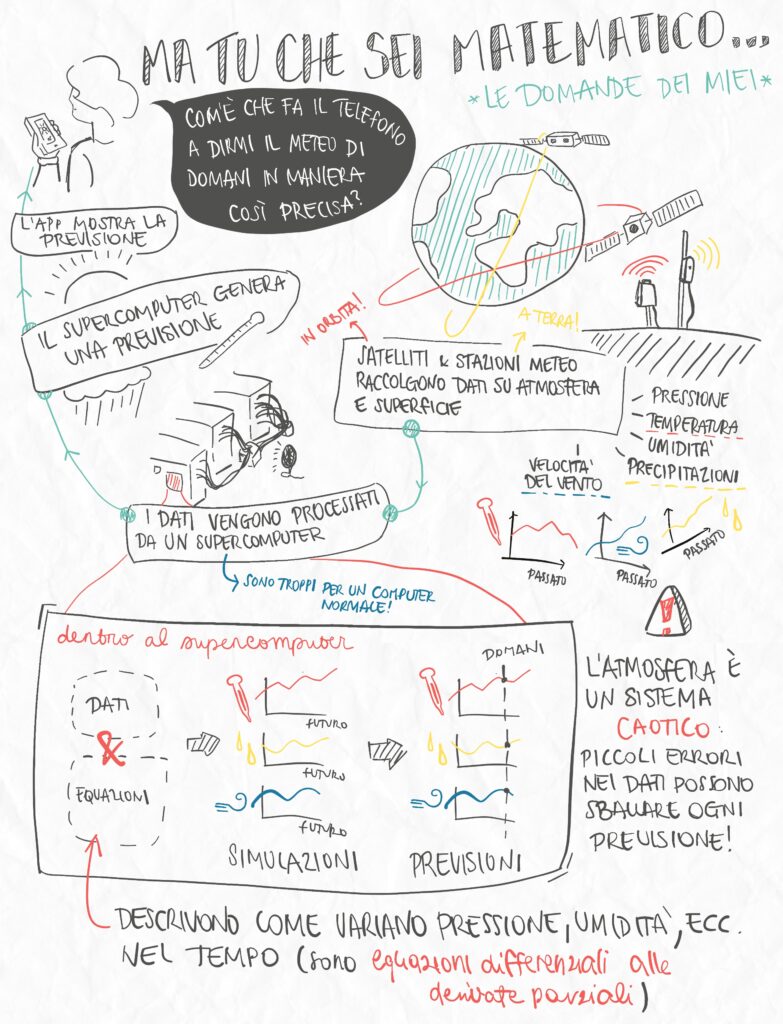 MA TU CHE SEI MATEMATICO...
*LE DOMANDE DEI MIEI*
COM'È CHE FA IL TELEFONO
A DIRMI IL METEO DI
DOMANI IN MANIERA
COSÌ PRECISA?
L'APP MOSTRA LA
PREVISIONE
IL SUPERCOMPUTER GENERA
UNA PREVISIONE
IN ORBITA!
A TERRA!
SATELLITI & STAZIONI METEO
RACCOLGONO DATI SU ATMOSFERA
E SUPERFICIE
- PRESSIONE
- TEMPERATURA
- UMIDITÀ
PRECIPITAZIONI
VELOCITÀ
DEL VENTO
PASSATO
PASSATO
PASSATO
I DATI VENGONO PROCESSATI
DA UN SUPERCOMPUTER
SONO TROPPI PER UN COMPUTER
NORMALE!
dentro al supercomputer
DATI
&
EQUAZIONI
FUTURO
FUTURO
FUTURO
SIMULAZIONI
DOMANI
PREVISIONI
!
L'ATMOSFERA È
UN SISTEMA
CAOTICO:
PICCOLI ERRORI
NEI DATI POSSONO
SBALLARE OGNI
PREVISIONE!
DESCRIVONO COME VARIANO PRESSIONE, UMIDITÀ, ECC.
NEL TEMPO (sono equazioni differenziali alle
derivate parziali)